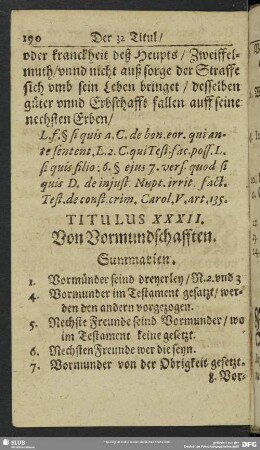 190 Der 32 Titul/
oder kranckheit deß Heupts/ Zweiffel-
muth/ vnnd nicht auß sorge der Straffe
sich vmb sein Leben bringet/ desselben
güter vnnd Erbschafft fallen auff seine
nechsten Erben/
L.f.§ si quis a. C. de bon. eor. qui an-
te sentent. L.2. C. qui Test. fac. poss. L.
si quis filio: 6. § ejus 7. vers. quod si
quis D. de injust. Rupt. irrit. fact.
Test. de const. crim. Carol. V. art. 135.
TITULUS XXXII.
Von Vormundschafften.
Summarien.
1. Vormünder seind dreyerley/ N.2. vnd 3
4. Vormunder im Testament gesatzt/ wer-
den den andern vorgezogen.
5. Nechste Freunde seind Vormunder/ wo
im Testament keine gesetzt.
6. Nechsten Freunde wer die seyn.
7. Vormunder von der Obrigkeit gesetzt.
8. Vor-
SLUB
DFG